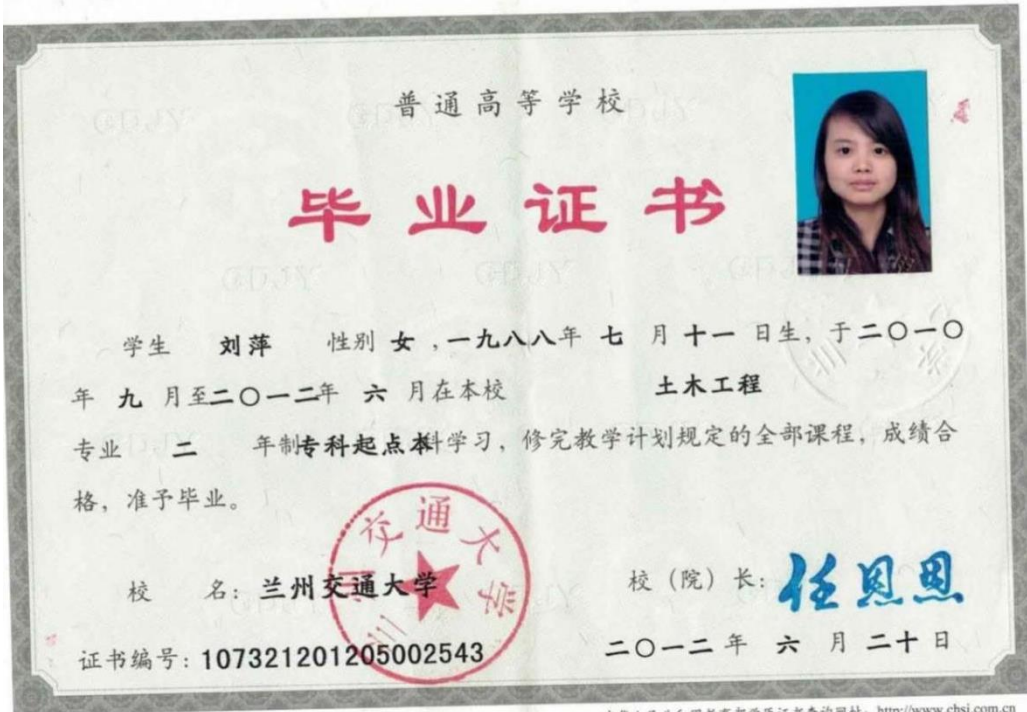 普通高等学校
毕业证书
学生 刘萍 性别 女，一九八八年 七 月 十一 日生，于二〇一〇
年 九 月至二〇一二年 六 月在本校 土木工程
专业 二 年制专科起点本科学习，修完教学计划规定的全部课程，成绩合
格，准予毕业。
兰州交通大学
校 名：兰州交通大学 校（院）长：任恩恩
证书编号：107321201205002543 二〇一二年 六 月 二十 日
查询网址：http://www.chsi.com.cn